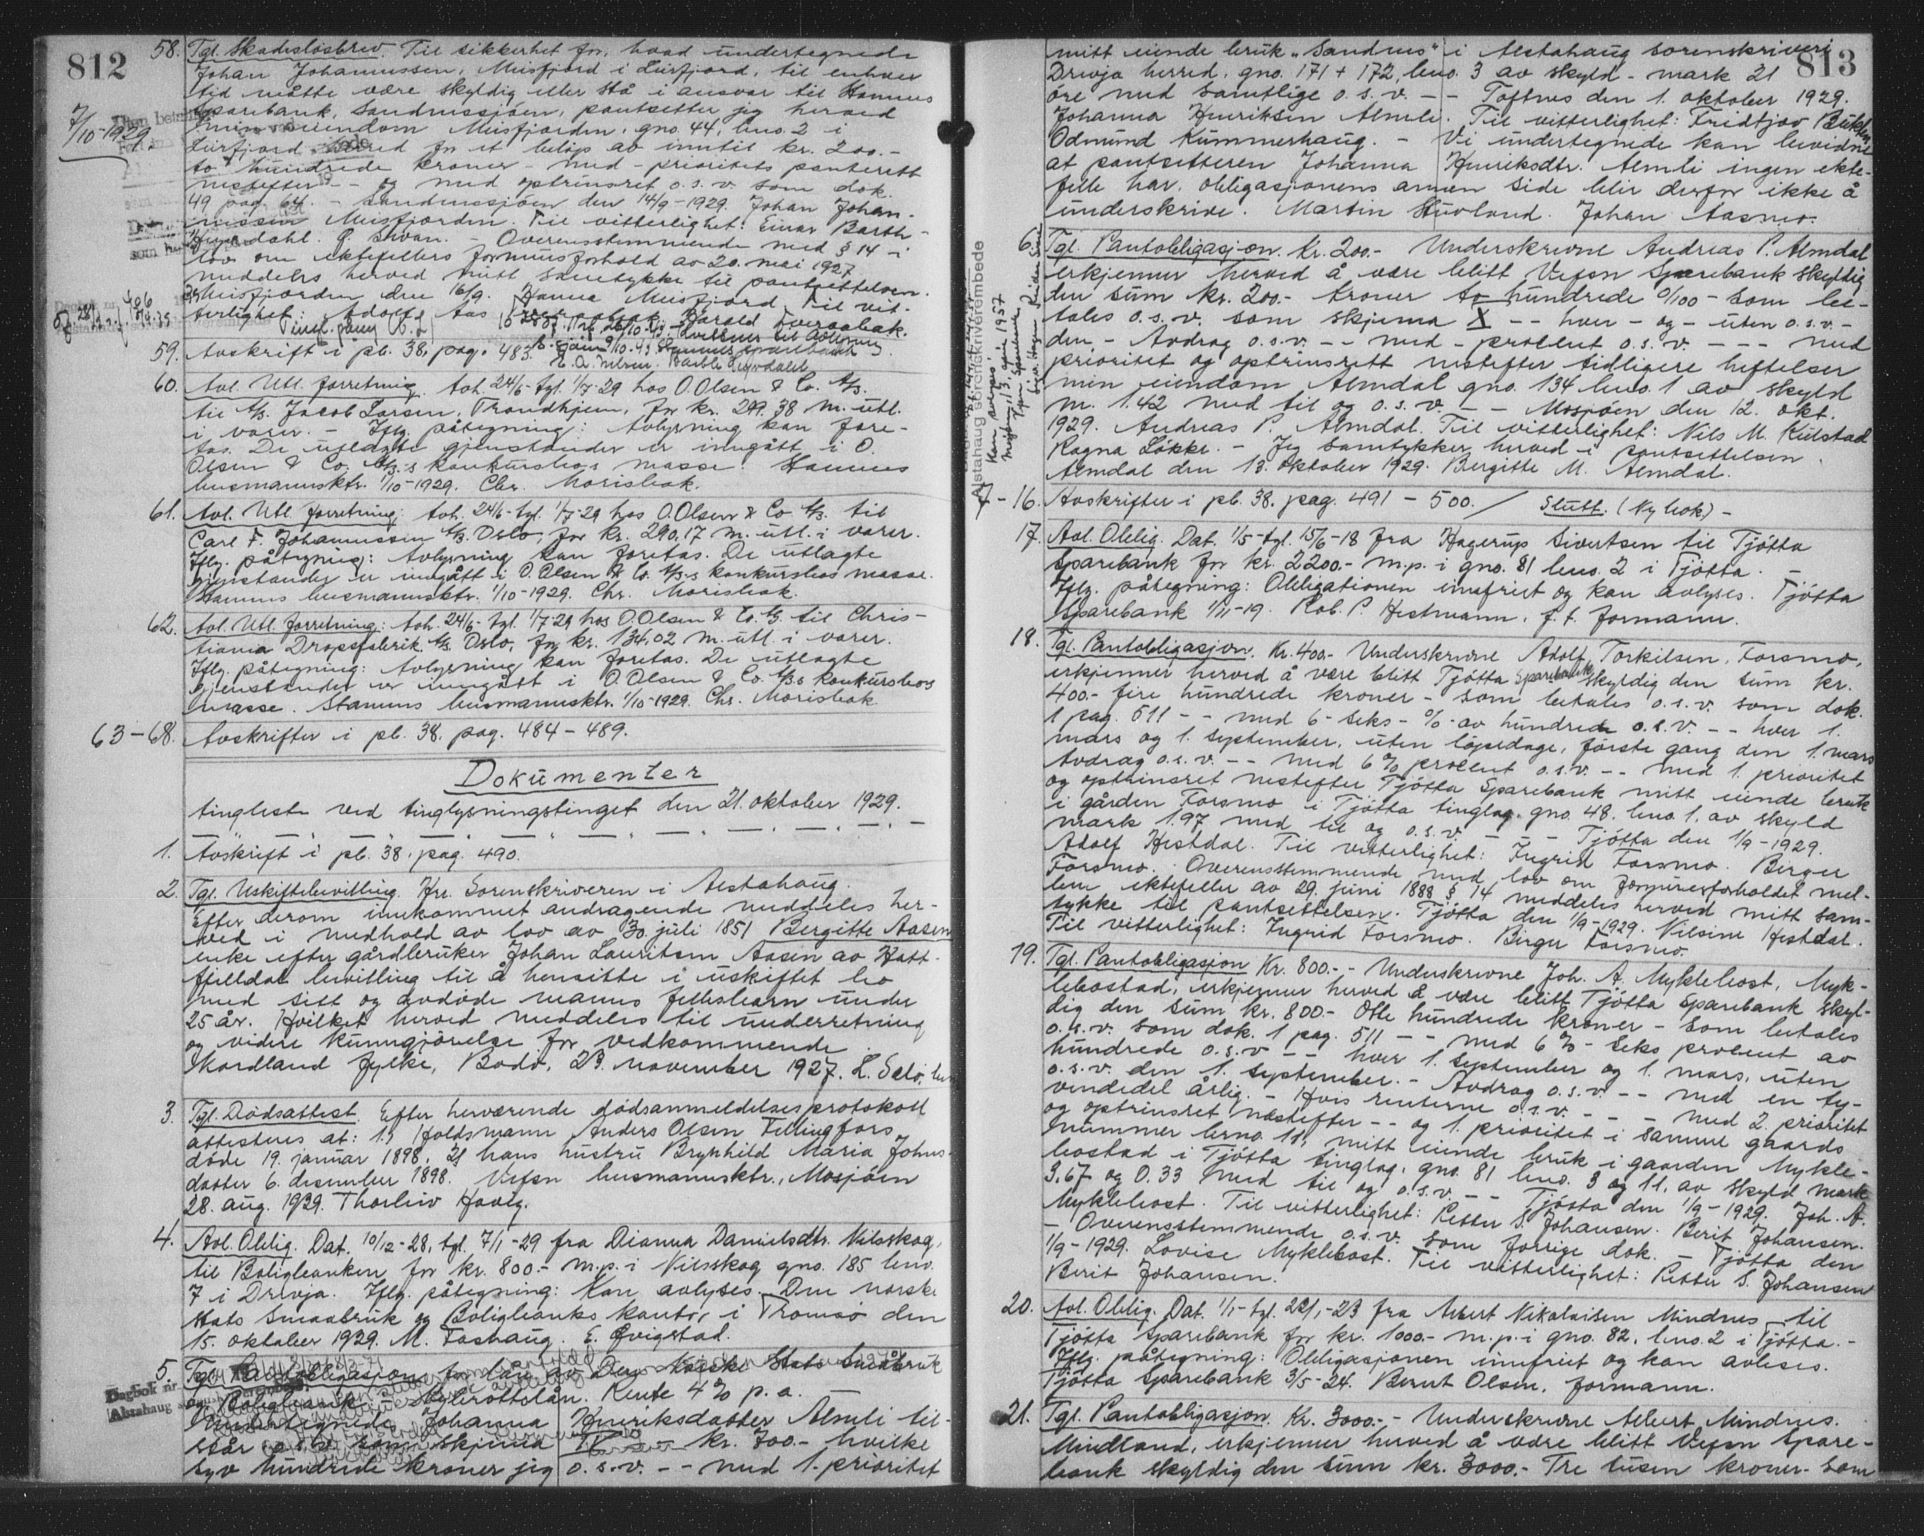 812
58. Tgl. Skadesløsbrev. Til sikkerhet for, hvad undertegnede
Johan Johannussen, Meisfjord i Leirfjord, til enhver
tid måtte være skyldig eller stå i ansvar til Stamnes
7/10-1929
Sparebank, Sandnessjøen, pantsetter jeg herved
min eiendom Meisfjorden, gno. 44, bno. 2 i
Leirfjord herred for et beløp av inntil kr. 200.-
to hundrede kroner - med - prioritets panterett
nestefter - - og med optrinsret o.s.v. som dok.
49 pag. 64. - Sandnessjøen den 14/9-1929. Johan Johan-
nussen Meisfjorden. Til vitterlighet: Einar Barth-
dahl. - Overensstemmende med § 14 i
lov om ektefellers formuesforhold av 20. mai 1927
meddeles herved mitt samtykke til pantsettelsen.
Meisfjorden den 16/9. Hanna Meisfjord. Til vit-
terlighet: Adolf Aas Harald Forrabak.
59. Avskrift i pb. 38, pag. 483.
60. Avl. Utl. forretning avh. 24/6- tgl. 1/7-29 hos O. Olsen & Co. A/S.
til A/S. Jacob Larsen, Trondhjem, for kr. 299.38 m. utl.
i varer. - Iflg. påtegning: Avlysning kan fore-
tas. De utlagte gjenstander er inngått i O.
Olsen & Co. A/S.s konkursbos masse. Stamnes
lensmannsktr. 1/10-1929. Chr. Morisbak.
61. Avl. Utl. forretning: avh. 24/6- tgl. 1/7-29 hos O. Olsen & Co A/S. til
Carl F. Johannessen A/S Oslo, for kr. 290,17 m. utl. i varer.
Iflg. påtegning: Avlysning kan foretas. De utlagte
gjenstander er inngått i O. Olsen & Co. A/S.s konkursbos masse.
Stamnes lensmannsktr. 1/10-1929. Chr. Morisbak.
62. Avl. Utl. forretning: avh. 24/6- tgl. 1/7-29 hos O. Olsen & Co. A/S. til Chris-
tiania Dropsfabrik A/S Oslo, for kr. 134,02 m. utl. i varer.
Iflg. påtegning: Avlysning kan foretas. De utlagte
gjenstander er inngått i O. Olsen & Co. A/S.s konkursbos
masse. Stamnes lensmannsktr. 1/10-1929. Chr. Morisbak
63-68. Avskrifter i pb. 38, pag. 484-489.
Dokumenter
tinglest ved tinglysningstinget den 21. oktober 1929.
1. Avskrift i pb. 38, pag. 490.
2. Tgl. Uskiftebevilling. Hr. Sorenskriveren i Alstahaug.
Efter derom innkommet andragende meddeles her-
ved i medhold av lov av 30. juli 1851 Bergitte Aasen
enke efter gårdbruker Johan Lauritsen Aasen av Hatt-
fjelldal bevilling til å hensitte i uskiftet bo
med sitt og avdøde manns fellesbarn under
25 år. Hvilket herved meddeles til underretning
og videre kunngjørelse for vedkommende.
Nordland fylke, Bodø, 23. november 1927. L.
3. Tgl. Dødsattest. Efter herværende dødsanmeldelsesprotokoll
attesteres at: 1) Holdsmann Anders Olsen Fellingfors
døde 19. januar 1898. 2) hans hustru Brynhild Maria Johns-
datter 6. desember 1898. Vefsn lensmannsktr., Mosjøen
28. aug. 1929. Thorleiv Havig.
4. Avl. Oblig. Dat. 10/12-28, tgl. 7/1-29 fra Dianna Danielsdtr. Nilsskog,
til Boligbanken for kr. 800.- m.p. i Nilsskog gno. 185 bno.
7 i Drevja. Iflg. påtegning: Kan avlyses. Den norske
Stats Smaabruk og Boligbanks kontor i Tromsø den
15. oktober 1929. M. Foshaug. E. Qvigstad.
5. Tgl. Pantobligasjon for lån av Den Norske Stats Småbruk
Dagbok nr.
og Boligbank - Myrerottslån. Rente 4% p.a.
Alstahaug sorenskriverembede
Undertegnede Johanna Henriksdatter Almli til-
står o.s.v. som skjema IV - kr. 700.- hvilke
syv hundrede kroner jeg o.s.v. - - med 1. prioritet
813
mitt eiende bruk "Sandnes" i Alstahaug sorenskriveri
Drevja herred, gno. 171 + 172, bno. 3 av skyld - mark 21
øre med samtlige o.s.v. - - Toftnes den 1. oktober 1929.
Johanna Henriksen Almli. Til vitterlighet: Fridtjov
Odmund Kummerhaug. - Vi undertegnede kan bevidne
at pantsetteren Johanna Henriksdtr. Almli ingen ekte-
felle har. Obligasjonens annen side blir derfor ikke å
underskrive. Martin Stuvland. Johan Aasmo.
6. Tgl. Pantobligasjon. Kr. 200.- Underskrevne Andreas P. Almdal
erkjenner herved å være blitt Vefsn Sparebank skyldig
den sum kr. 200.- kroner to hundrede 0/100 - som be-
tales o.s.v. som skjema X - - hver - og - uten o.s.v. -
den - Avdrag o.s.v. - - med - procent o.s.v. - - - med
prioritet og optrinsrett nestefter tidligere heftelser
min eiendom Almdal gno. 134 bno. 1 av skyld
m. 1.42 med til og o.s.v. - - Mosjøen den 12. okt.
1929. Andreas P. Almdal. Til vitterlighet: Nils M. Kulstad
Ragna Løkke. - Jeg samtykker herved i pantsettelsen
Almdal den 13. oktober 1929. Bergitte M. Almdal.
Alstahaug sorenskriverembede
7-16. Avskrifter i pb. 38, pag. 491 - 500. / Slutt. (Ny bok) -
17. Avl. Oblig. Dat. 1/5- tgl. 15/6-18 fra Hagerup Sivertsen til Tjøtta
Sparebank for kr. 2200.- m.p. i gno. 81 bno. 2 i Tjøtta. -
Iflg. påtegning: Obligationen innfriet og kan avlyses. Tjøtta
Sparebank 1/11-19. Rob. P. Hestmann, f.t. formann.
18. Tgl. Pantobligasjon. Kr. 400.- Underskrevne Adolf Torkilsen, Forsmo,
erkjenner herved å være blitt Tjøtta Sparebank skyldig den sum kr.
400.- fire hundrede kroner - som betales o.s.v. som dok.
1 pag. 511 - - med 6 - seks - % av hundrede o.s.v. - - hver 1.
mars og 1. september, uten løpedage, første gang den 1. mars
Avdrag o.s.v. - - med 6% procent o.s.v. - - med 1. prioritet
og optrinsret nestefter Tjøtta Sparebank mitt eiende bruk
i gården Forsmo i Tjøtta tinglag, gno. 48, bno. 1, av skyld
mark 1.97 med til og o.s.v. - - Tjøtta den 1/9-1929.
Adolf Hestdal. Til vitterlighet: Ingrid Forsmo. Birger
Forsmo. Overensstemmende med lov om formuesforholdet mel-
lem ektefeller av 29. juni 1888 § 14 meddeles herved mitt sam-
tykke til pantsettelsen. Tjøtta den 1/9-1929. Nilsine Hestdal.
Til vitterlighet: Ingrid Forsmo. Birger Forsmo.
19. Tgl. Pantobligasjon Kr. 800.- - Underskrevne Joh. A. Myklebost, Myk-
lebostad, erkjenner herved å være blitt Tjøtta Sparebank skyl-
dig den sum kr. 800.- Otte hundrede kroner - som betales
o.s.v. som dok. 1 pag. 511 - - med 6% - seks procent av
hundrede o.s.v. - - hver 1. september og 1. mars, uten
o.s.v. den 1. september. - Avdrag o.s.v. - - med en ty-
vendedel årlig. - Hvis renterne o.s.v. - - - med 2. prioritet
og optrinsret næstefter - - og 1. prioritet i samme gaards
nummer bno. 11, mitt eiende bruk i gaarden Mykle-
bostad i Tjøtta tinglag, gno. 81 bno. 3 og 11, av skyld mark
3,67 og 0.33 med til og o.s.v. - - Tjøtta den 1/9-1929. Joh. A.
Myklebost. Til vitterlighet: Petter S. Johansen. Berit Johansen.
- Overensstemmende o.s.v. som forrige dok. - Tjøtta den
1/9-1929. Lovise Myklebost. Til vitterlighet: Petter S. Johansen
Berit Johansen.
20. Avl. Oblig. Dat. 1/1- tgl. 22/1-23 fra Albert Nikolaisen Mindnes til
Tjøtta Sparebank for kr. 1000.- m.p. i gno. 82, bno. 2 i Tjøtta. -
Iflg. påtegning: Obligasjonen innfriet og kan avleses.
Tjøtta Sparebank 3/5-24. Bernt Olsen, formann.
21. Tgl. Pantobligasjon. Kr. 3000.- - Underskrevne Albert Mindnes.
Mindland, erkjenner herved å være blitt Vefsn Spare-
bank skyldig den sum kr. 3000.- Tre tusen kroner - som